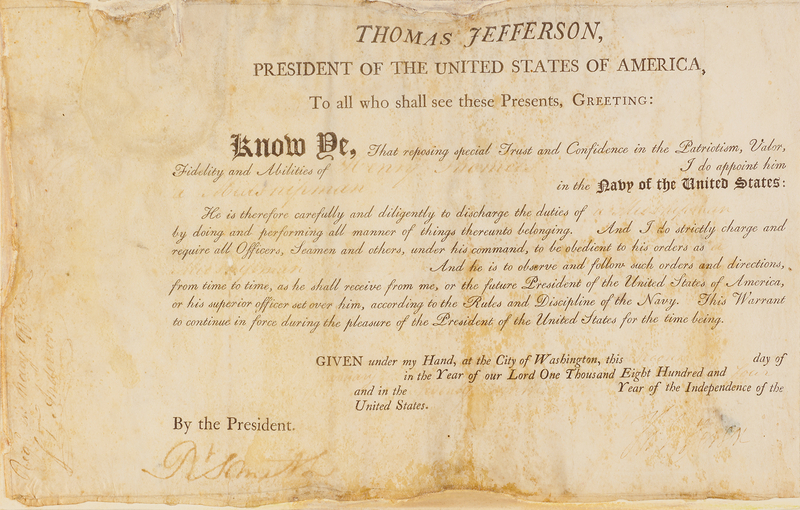 THOMAS JEFFERSON,
PRESIDENT OF THE UNITED STATES OF AMERICA,
To all who shall see these Presents, GREETING:
Know Ye, That reposing special Trust and Confidence in the Patriotism, Valor,
Fidelity and Abilities of I do appoint him
a Midshipman in the Navy of the United States:
He is therefore carefully and diligently to discharge the duties of a Midshipman
by doing and performing all manner of things thereunto belonging. And I do strictly charge and
require all Officers, Seamen and others, under his command, to be obedient to his orders as a
Midshipman And he is to observe and follow such orders and directions,
from time to time, as he shall receive from me, or the future President of the United States of America,
or his superior officer set over him, according to the Rules and Discipline of the Navy. This Warrant
to continue in force during the pleasure of the President of the United States for the time being.
GIVEN under my Hand, at the City of Washington, this day of
in the Year of our Lord One Thousand Eight Hundred and
and in the Year of the Independence of the
United States.
By the President.
Rt Smith